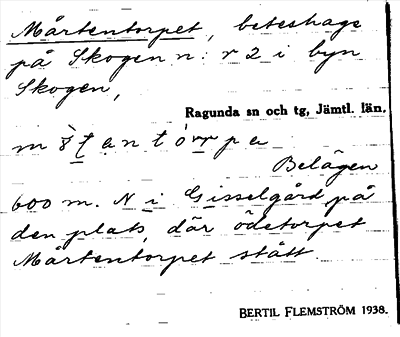 Mårtentorpet, beteshage
på Skogen n:r 2 i byn
Skogen,
Ragunda sn och tg, Jämtl. län.
Belägen
600 m. N i Gisselgård på
den plats, där ödetorpet
Mårtentorpet stått.
BERTIL FLEMSTRÖM 1938.